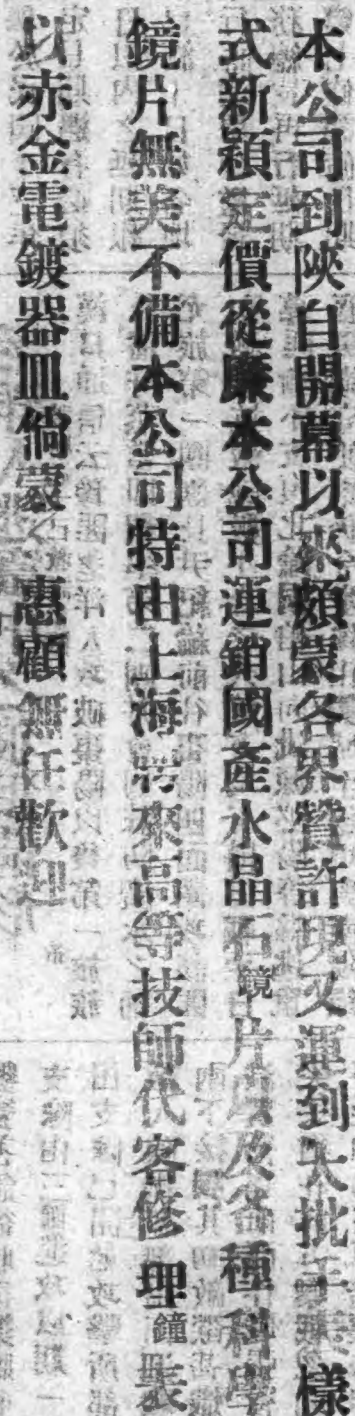 本公司到陝自開幕以來頗蒙各界贊許現又運到大批手表樣
式新穎定價從廉本公司運銷國產水晶石鏡片以及各種科學
鏡片無美不備本公司特由上海聘來高等技師代客修理鐘表
以赤金電鍍器皿倘蒙惠顧無任歡迎